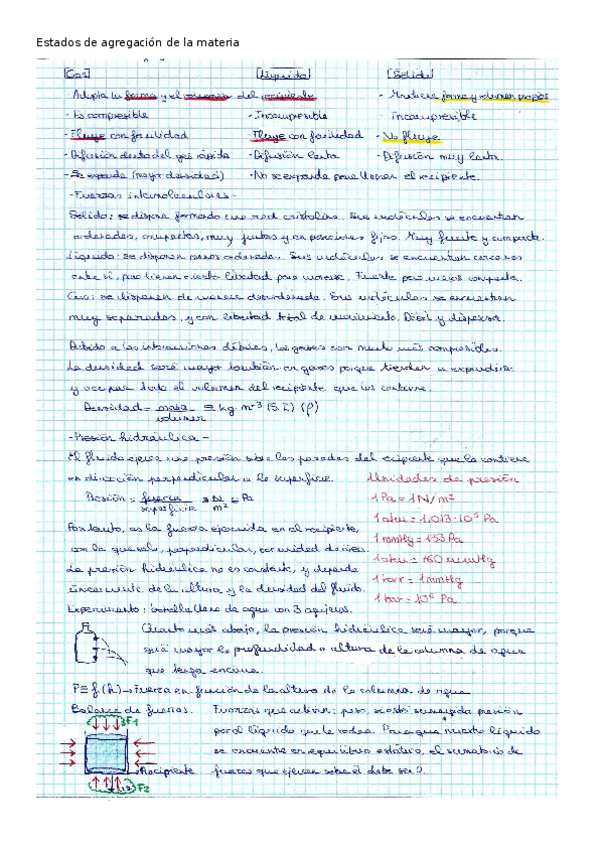 Estados de agregación de la materia
Gas Líquido Sólido
Adopta la forma y el volumen del recipiente - Mantiene forma y volumen propios
- Es compresible - Incompresible Incompresible
- Fluye con facilidad - Fluye con facilidad - No fluye
- Difusión dentro del gas rápida - Difusión lenta - Difusión muy lenta
- Se expande (mayor densidad) - No se expande para llenar el recipiente.
- Fuerzas intermoleculares -
Sólido: se dispone formando una red cristalina. Sus moléculas se encuentran
ordenadas, compactas, muy juntas y en posiciones fijas. Muy fuerte y compacta.
Líquido: se disponen menos ordenada. Sus moléculas se encuentran cercanas
entre sí, pero tienen cierta libertad para moverse. Fuerte pero menos compacta.
Gas: se disponen de manera desordenada. Sus moléculas se encuentran
muy separadas, y con libertad total de movimiento. Débil y dispersa.
Debido a las interacciones débiles, los gases son mucho más compresibles.
La densidad será mayor también en gases porque tienden a expandirse
y ocupar todo el volumen del recipiente que los contiene.
Densidad = masa / volumen ≡ kg·m⁻³ (S.I.) (ρ)
- Presión hidráulica -
El fluido ejerce una presión sobre las paredes del recipiente que lo contiene
en dirección perpendicular a la superficie.
Presión = fuerza / superficie ≡ N / m² ≡ Pa
Por tanto, es la fuerza ejercida en el recipiente,
perpendicular, por unidad de área.
La presión hidráulica no es constante, y depende
únicamente de la altura y la densidad del fluido.
Experimento: botella llena de agua con 3 agujeros.
Unidades de presión
1 Pa = 1 N/m²
1 atm = 1,013·10⁵ Pa
1 mmHg = 133 Pa
1 atm = 760 mmHg
1 torr = 1 mmHg
1 bar = 10⁵ Pa
Cuanto más abajo, la presión hidráulica será mayor, porque
será mayor la profundidad o altura de la columna de agua
que tenga encima.
P ≡ f (h) → Fuerza en función de la altura de la columna de agua
Balance de fuerzas. Fuerzas que actúan: peso, si está sumergida presión
por el líquido que le rodea. Para que nuestro líquido
se encuentre en equilibrio estático, el sumatorio de
fuerzas que ejercen sobre él debe ser 0.
F1
Recipiente
F2